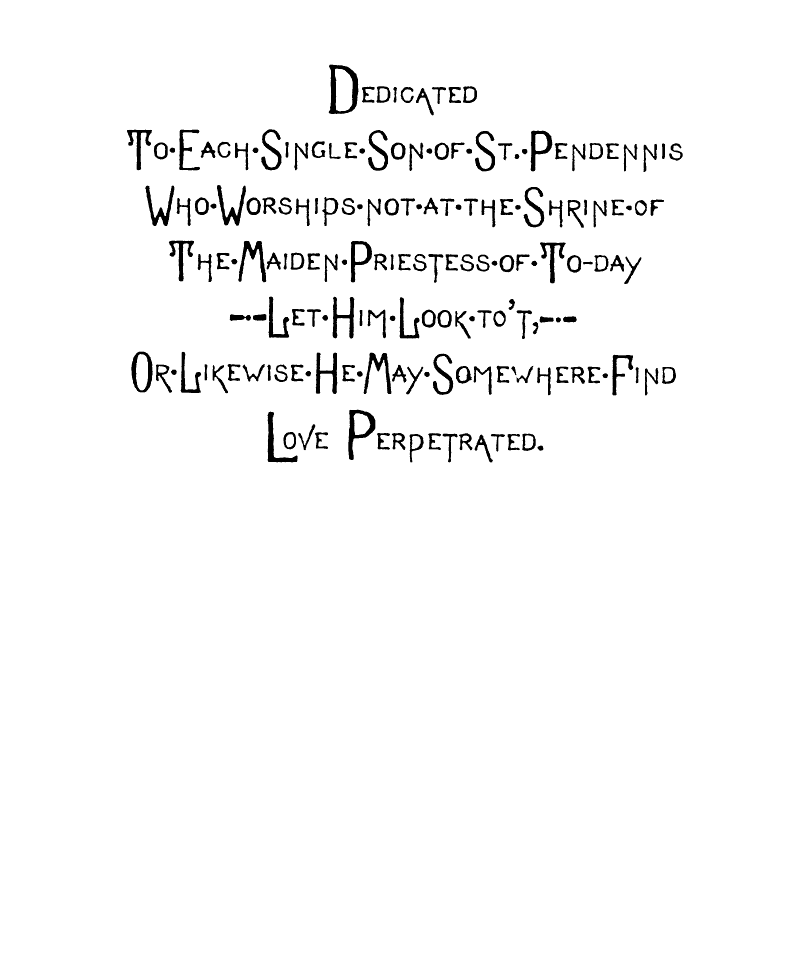 Dedicated
To·Each·Single·Son·of·St.·Pendennis
Who·Worships·not·at·the·Shrine·of
The·Maiden·Priestess·of·To-day
-·-Let·Him·Look·to't,-·-
Or·Likewise·He·May·Somewhere·Find
Love Perpetrated.